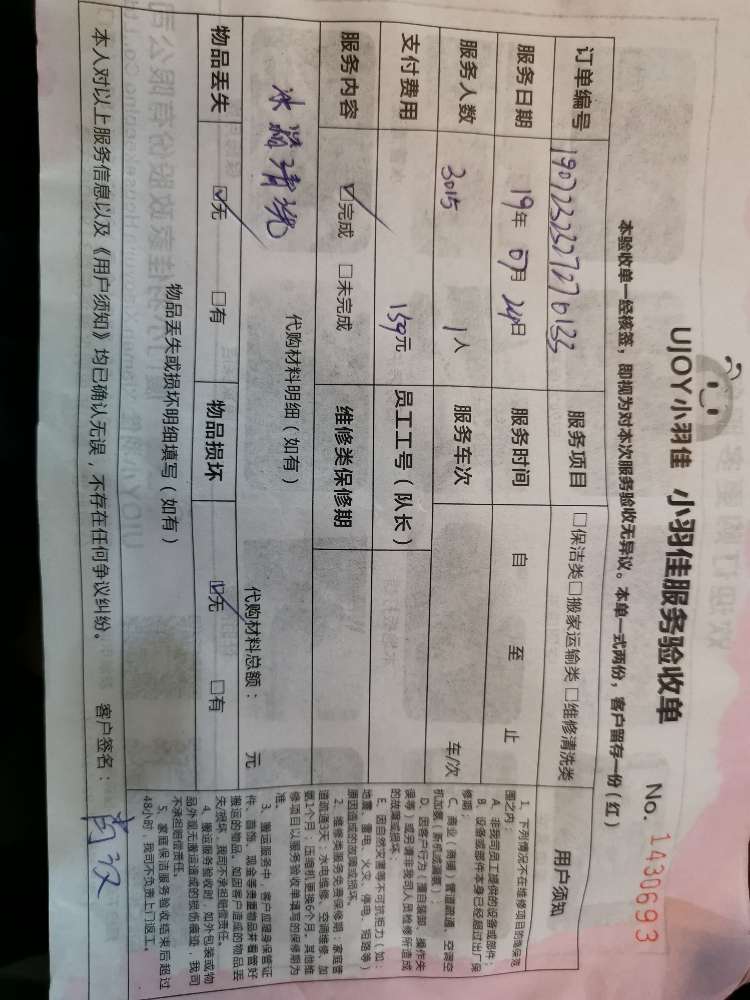 UJOY小羽佳 小羽佳服务验收单 No. 1430693
本验收单一经核签，即视为对本次服务验收无异议。本单一式两份，客户留存一份(红)
订单编号 服务项目 □保洁类□搬家运输类□维修清洗类
服务日期 19年 07月 24日 服务时间 自 至 止
服务人数 3015 1人 服务车次 车/次
支付费用 159元 员工工号(队长)
服务内容 ☑完成 □未完成 维修类保修期
冰箱清洗 代购材料明细(如有) 代购材料总额： 元
物品丢失 ☑无 □有 物品损坏 ☑无 □有
物品丢失或损坏明细填写(如有)
本人对以上服务信息以及《用户须知》均已确认无误，不存在任何争议纠纷。 客户签名：
用户须知
1、下列情况不在维修项目的免保范
围之内：
A、非我司员工提供的设备或部件；
B、设备或部件本身已经超过出厂保
修期；
C、商业(商铺)管道疏通、空调空
机加氨(新机或漏氨)；
D、因客户行为(擅自装卸、操作失
误等)或另请非我司人员检修所造成
的故障或损坏
E、因自然灾害等不可抗拒力(如：
地震、雷电、火灾、停电、短路等)
原因造成的故障或损坏。
2、维修类服务免费保修期：家庭管
道疏通3天；水电维修、空调维修、加
氨1个月；压缩机更换6个月。其他维
修项目以服务验收单填写的保修期为
准。
3、搬运服务中，客户应随身保管证
件、首饰、现金等贵重物品并看管好
搬运的物品。如因客户造成的物品丢
失/损坏，我司不承担赔偿责任。
4、搬运服务验收时，如外包装或物
品外观无搬运造成的损伤痕迹，我司
不承担赔偿责任。
5、家庭保洁服务验收结束后超过
48小时，我司不负责上门返工。